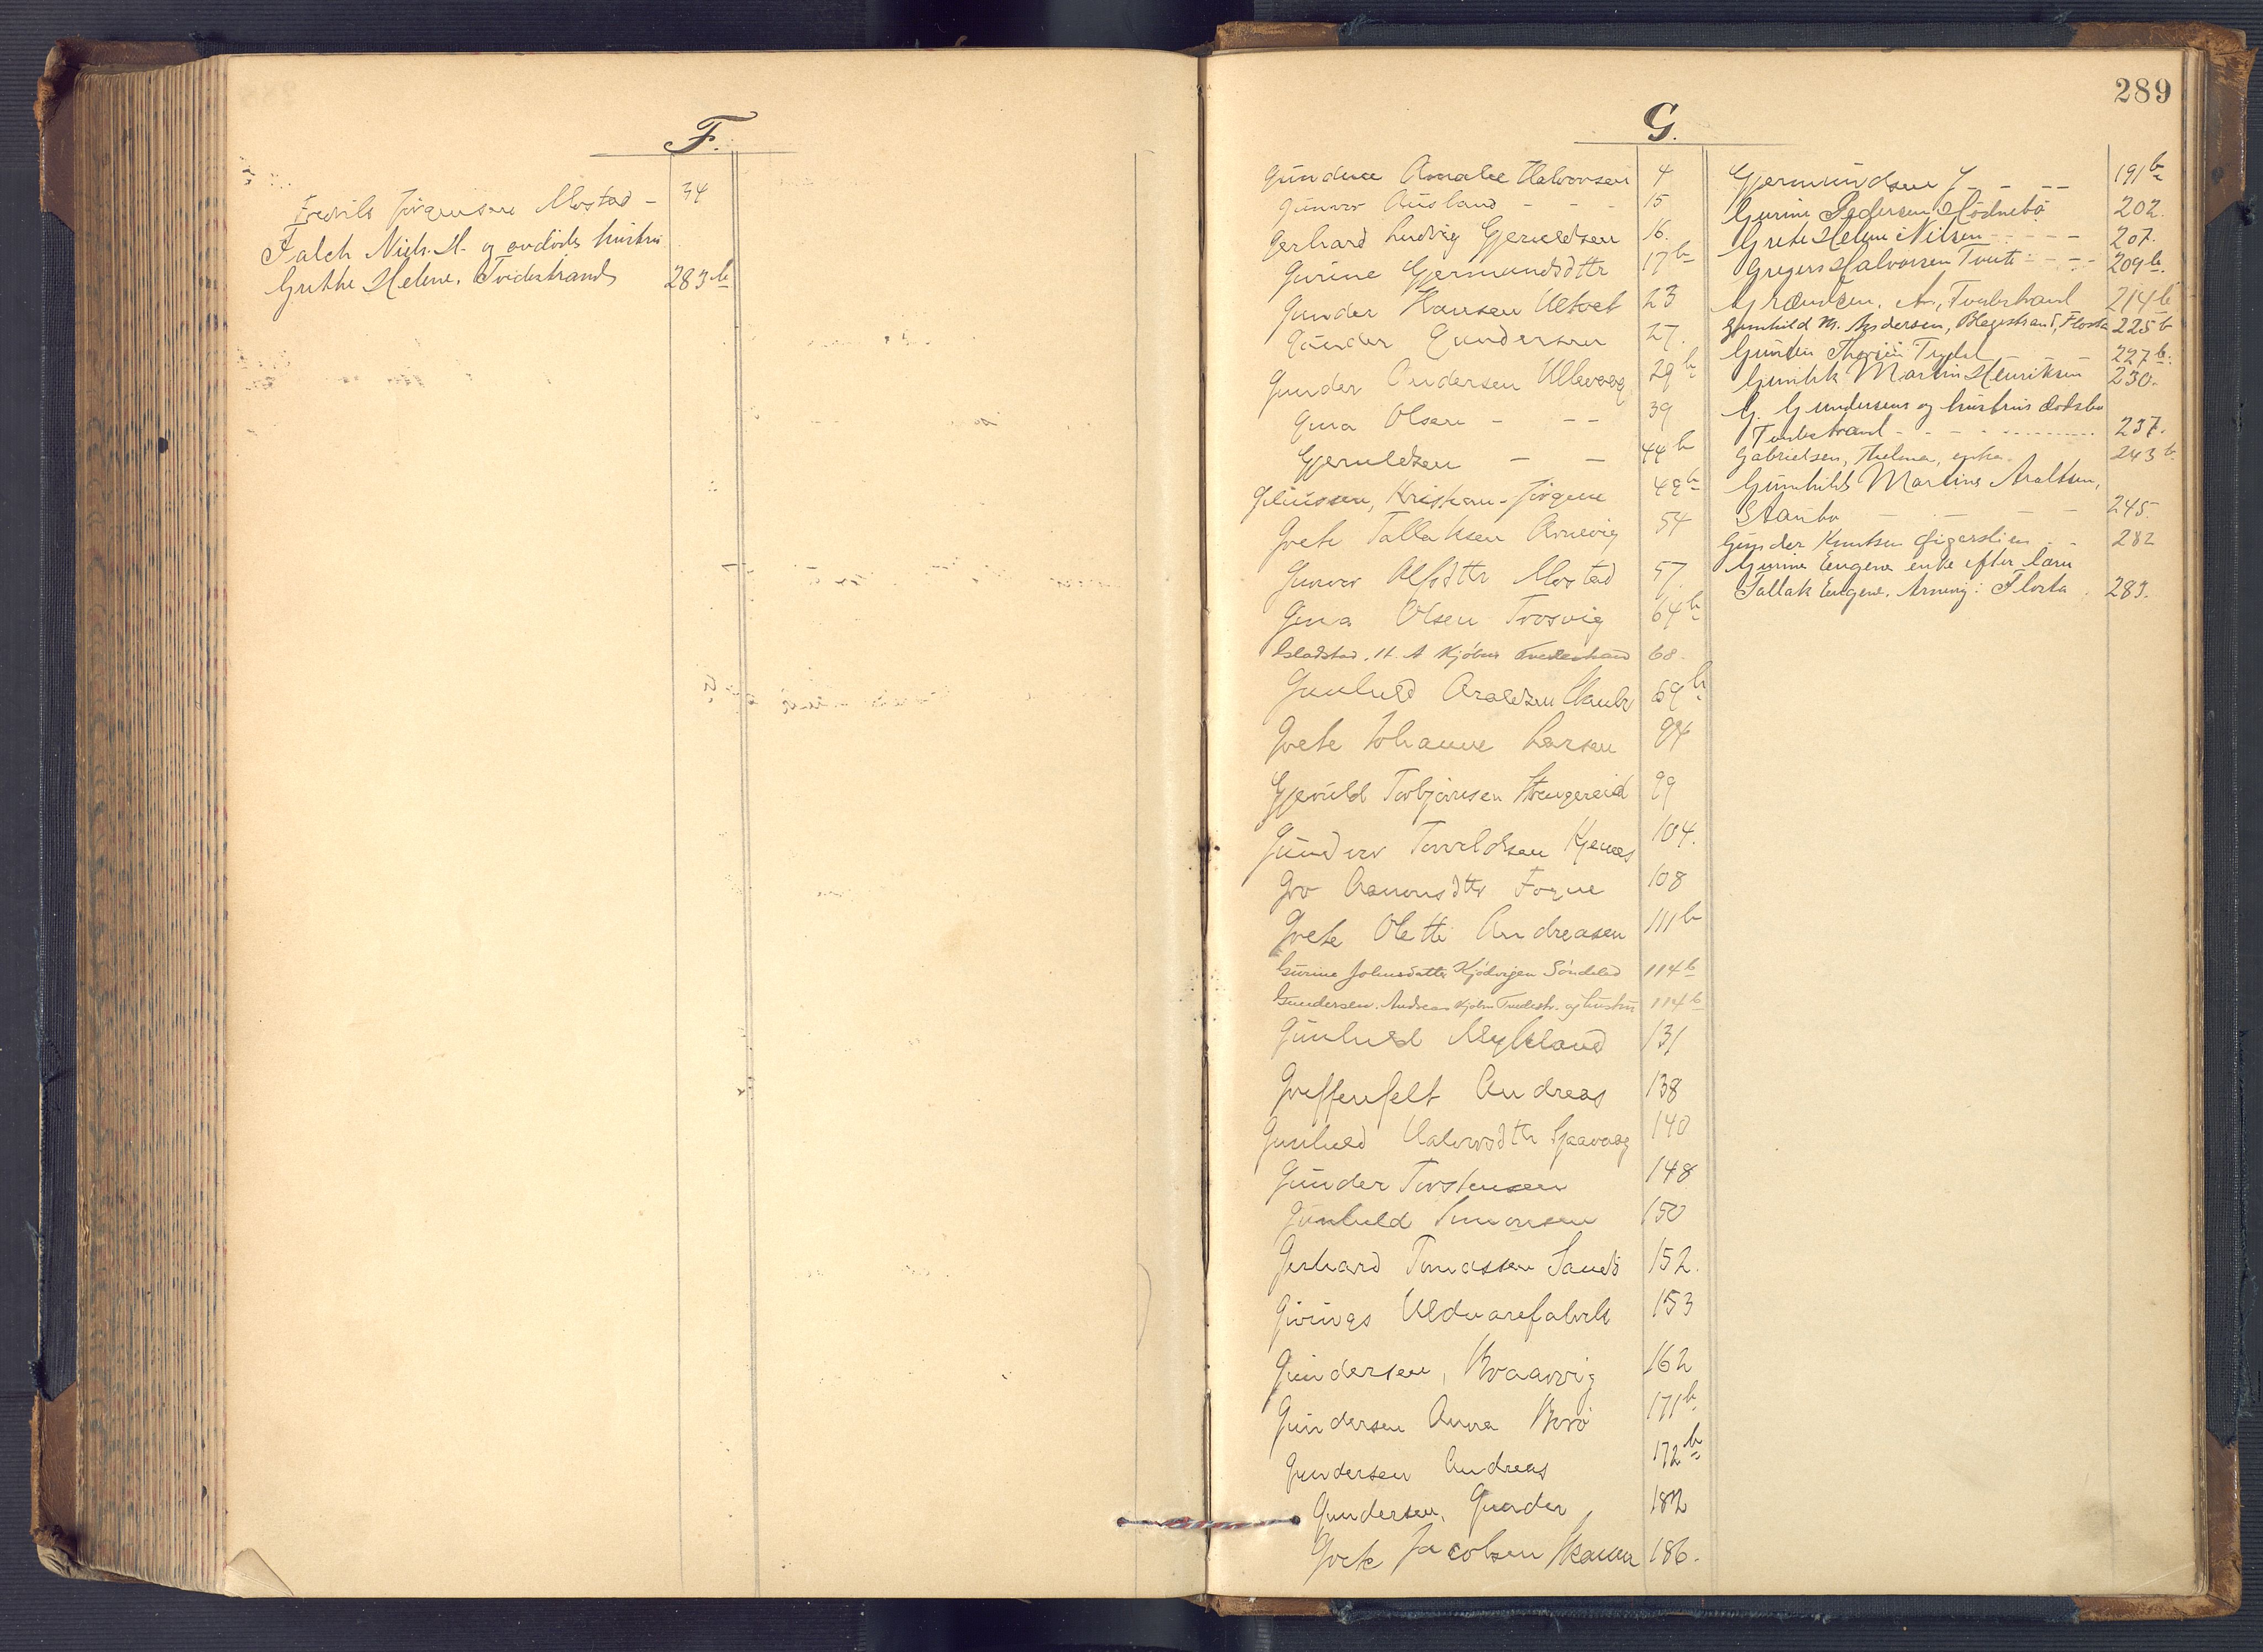 F.
Fredrik Jörgensen Mostad - 34
Falch Niels. H. og avdöde hustru
Grethe Helene. Tvedestrand 283 b
289
G.
Gundine Amalie Halvorsen 4
Gunvor Ausland - - - 15
Gerhard Ludvig Gjeruldsen 16.
Gurine Gjermundsdttr 17 b
Gunder Hansen 23
Gunder Gundersen 27.
Gunder Andersen Ullevaag 29 b
Gina Olsen - - - 39
Gjeruldsen - - 44 b
Kristian Jörgine 49 b
Grete Tallaksen Arnevig 54
Gunvor Alfsdttr Mostad 57.
Gina Olsen Trosvig 64 b
Gladstad. H. A Kjöbm Tvedestrand 68.
Gunhild Araldsen Staubö 69 b
Grete Johanne Larsen 94
Gjeruld Torbjörnsen Strengereid 99
Gunder Taraldsen Kjenes 104.
Gro Aamonsdttr Fogne 108
Grete Olette Andreasen 111 b
Gurine Johnsdatter Kjödvigen Söndeled 114 b
Gundersen. Andreas Kjöbm Tvedestr. og hustru 114 b
Gunhild Mykland 131
Greffenfelt Andreas 138
Gunhild Halvorsdttr 140
Gunder Torstensen 150 148
Gunhild Simonsen 150
Gerhard Tomassen Sandö 152.
Grivings Uldvarefabrik 153
Gundersen, Braarvig 162
Gundersen Anna Borö 171 b
Gundersen Andreas 172 b
Gundersen, Gunder 182
Grete Jacobsen 186.
Gjermundsen J - - - - 191 b
Gurine Pedersen Hödnebö 202.
Grete Helene Nilsen - - - - - 207.
Gregers Halvorsen Tveite - - - - 209 b.
Grændsen. A., Tvedestrand 214 b
Gunhild M. Andersen, Blegestrand, Flosta 225 b
Gunder Thorsen 227 b.
Gunlek Martin Henriksen 230.
G. Gundersens og hustrus dödsbo
Tvedestrand - - - 237.
Gabrielsen, Thelma, enke. 243 b
Gunhild Martine Araldsen,
Staubö - - - - 245.
Gunder Knutsen - - 282
Gurine Eugene enke efter
Tallak Eugene. Arnevig: Flosta 283.